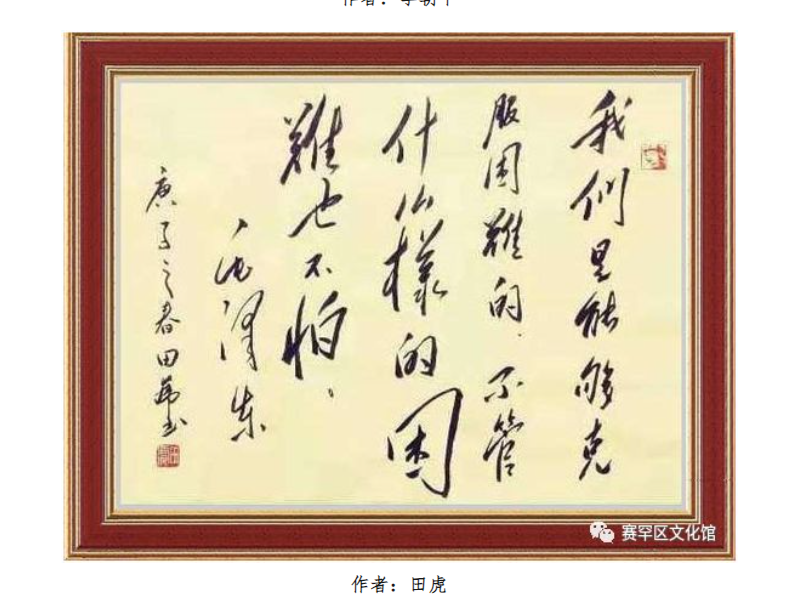 作者：
我们是能够克
服困難的，不管
什么樣的困
難也不怕，
毛澤东
庚子之春田虎书
赛罕区文化馆
作者：田虎